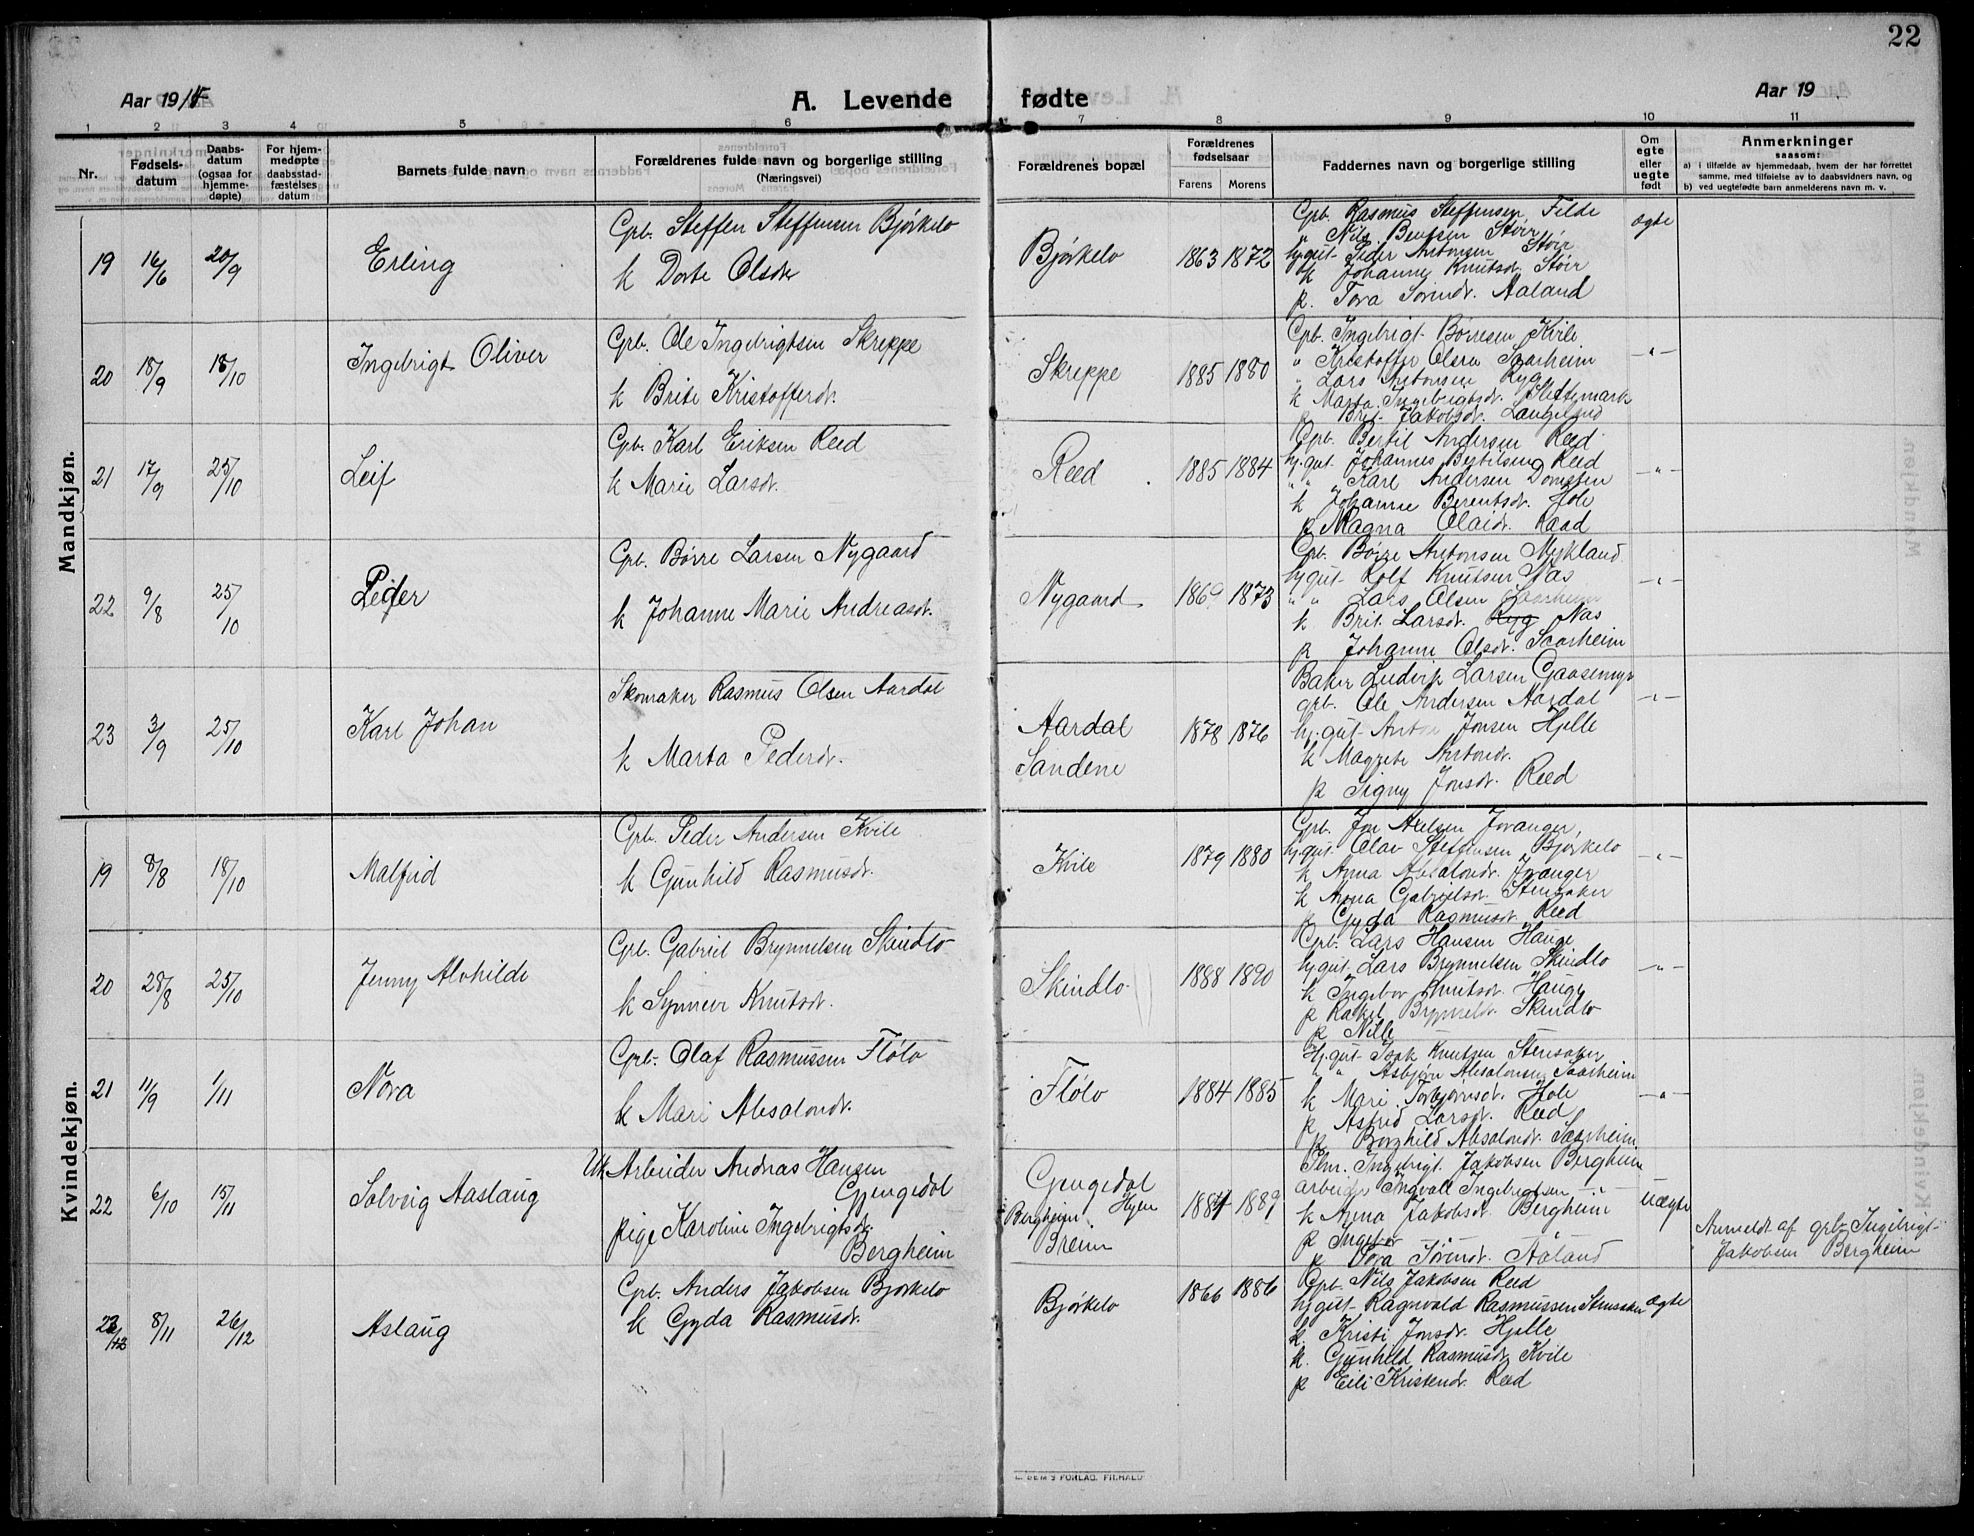 22
Aar 1915
A. Levende fødte
Aar 19
1 2 3 4 5 6 7 8 9 10 11
Nr.
Fødsels-
datum
Daabs-
datum
(ogsaa for
hjemme-
døpte)
For hjem-
medøpte
daabsstad-
fæstelses
datum
Barnets fulde navn
Forældrenes fulde navn og borgerlige stilling
(Næringsvei)
Forældrenes bopæl
Forældrenes
fødselsaar
Farens Morens
Faddernes navn og borgerlige stilling
Om
egte
eller
uegte
født
Anmerkninger
saasom:
a) i tilfælde av hjemmedaab, hvem der har forrettet
samme, med tilføielse av to daabsvidners navn, og
b) ved uegtefødte barn anmelderens navn m. v.
Mandkjøn.
19 16/6 20/9 Erling
Grb. Steffen Steffensen Bjørkelo
k Dorte Olsdr
Bjørkelo 1863 1872
Grb. Rasmus Steffensen, Felde
" Nils Bentsen Støir
hj.gut Peder Antonsen Støir
k Johanne Knutsdr. Støir
p. Tora Sørindr. Aaland
ægte
20 18/9 18/10 Ingebrigt Oliver
Grb. Ole Ingebrigtsen Skreppe
k Brite Kristofferdr.
Skreppe 1885 1880
Grb. Ingebrigt Børresen Kvile
" Kristoffer Olsen Saarheim
" Lars Antonsen Ryg
k Marta Ingebrigtsdr. Slettemark
p Brit Jakobsdr. Langeland
-"-
21 17/9 25/10 Leif
Grb. Karl Eriksen Reed
k Marie Larsdr.
Reed 1885 1884
Grb. Bertil Andersen Reed
hj.gut Johannes Bertilsen Reed
" " Karl Andersen Domsten
k Johanne Berentsdr. Hole
p Magna Olaidr. Raad
-"-
22 9/8 25/10 Peder
Grb. Børre Larsen Nygaard
k Johanne Marie Andreasdr.
Nygaard 1869 1873
Grb. Børre Antonsen Mykland
hj.gut Rolf Knutsen Nas
" " Lars Olsen Saarheim
k Brit Larsdr. Ryg Nas
p Johanne Olsdr. Saarheim
-"-
23 3/9 25/10 Karl Johan
Skomaker Rasmus Olsen Aardal
k Marta Pedersdr.
Aardal
Sandene
1878 1876
Baker Ludvik Larsen Gaasemyr
grb. Ole Andersen Aardal
hj.gut Anton Jonsen Hjelle
k Magrete Antondr.
p Signy Jonsdr. Reed
-"-
Kvindekjøn.
19 8/8 18/10 Malfrid
Grb. Peder Andersen Kvile
k Gunhild Rasmusdr.
Kvile 1879 1880
Grb. Jon Nielsen Joranger,
hj.gut Olav Steffensen Bjørkelo
k Anna Absalondr. Joranger
k Anna Gabrielsdr Stensaker
p Gyda Rasmusdr Reed
-"-
20 28/8 25/10 Jenny Alvhilde
Grb. Gabriel Brynnelsen Skindlo
k Synneve Knutsdr.
Skindlo 1888 1890
Grb. Lars Hansen Hauge
hj.gut Lars Brynnelsen Skindlo
k Ingebor Knutsdr. Hauge
p Rakel Brynneldr. Skindlo
p Nille
-"-
21 11/9 1/11 Nora
Grb. Olaf Rasmussen Flølo
k Mari Absalondr.
Flølo 1884 1885
Hj.gut Isak Knutsen Stensaker
" " Asbjørn Absalonsen Saarheim
k Mari Torbjørnsdr. Hole
p Astrid Larsdr. Reed
p Borghild Absalondr. Saarheim
-"-
22 6/10 15/11 Solveig Aaslaug
Uk Arbeider Andreas Hansen
Gjengedal
pige Karoline Ingebrigtsdr.
Bergheim
Gjengedal
Hyen
Bergheim
Breim
1884 1889
Plm. Ingebrigt Jakobsen Bergheim
arbeider Ingvall Ingebrigtsen "
k Anna Jakobsdr Bergheim
p Ingebor
p Tora Sørindr. Aaland
uægte
Anmeldt af grb. Ingebrigt
Jakobsen Bergheim
23 8/11 26/12 Aslaug
Grb. Anders Jakobsen Bjørkelo
k Gyda Rasmusdr.
Bjørkelo 1866 1886
Grb. Nils Jakobsen Reed
hj.gut Ragnvald Rasmussen Stensaker
k. Kristi Jonsdr. Hjelle
k. Gunhild Rasmusdr Kvile
p Eili Kristendr. Reed
ægte
SEM'S FORLAG, FR.HALD